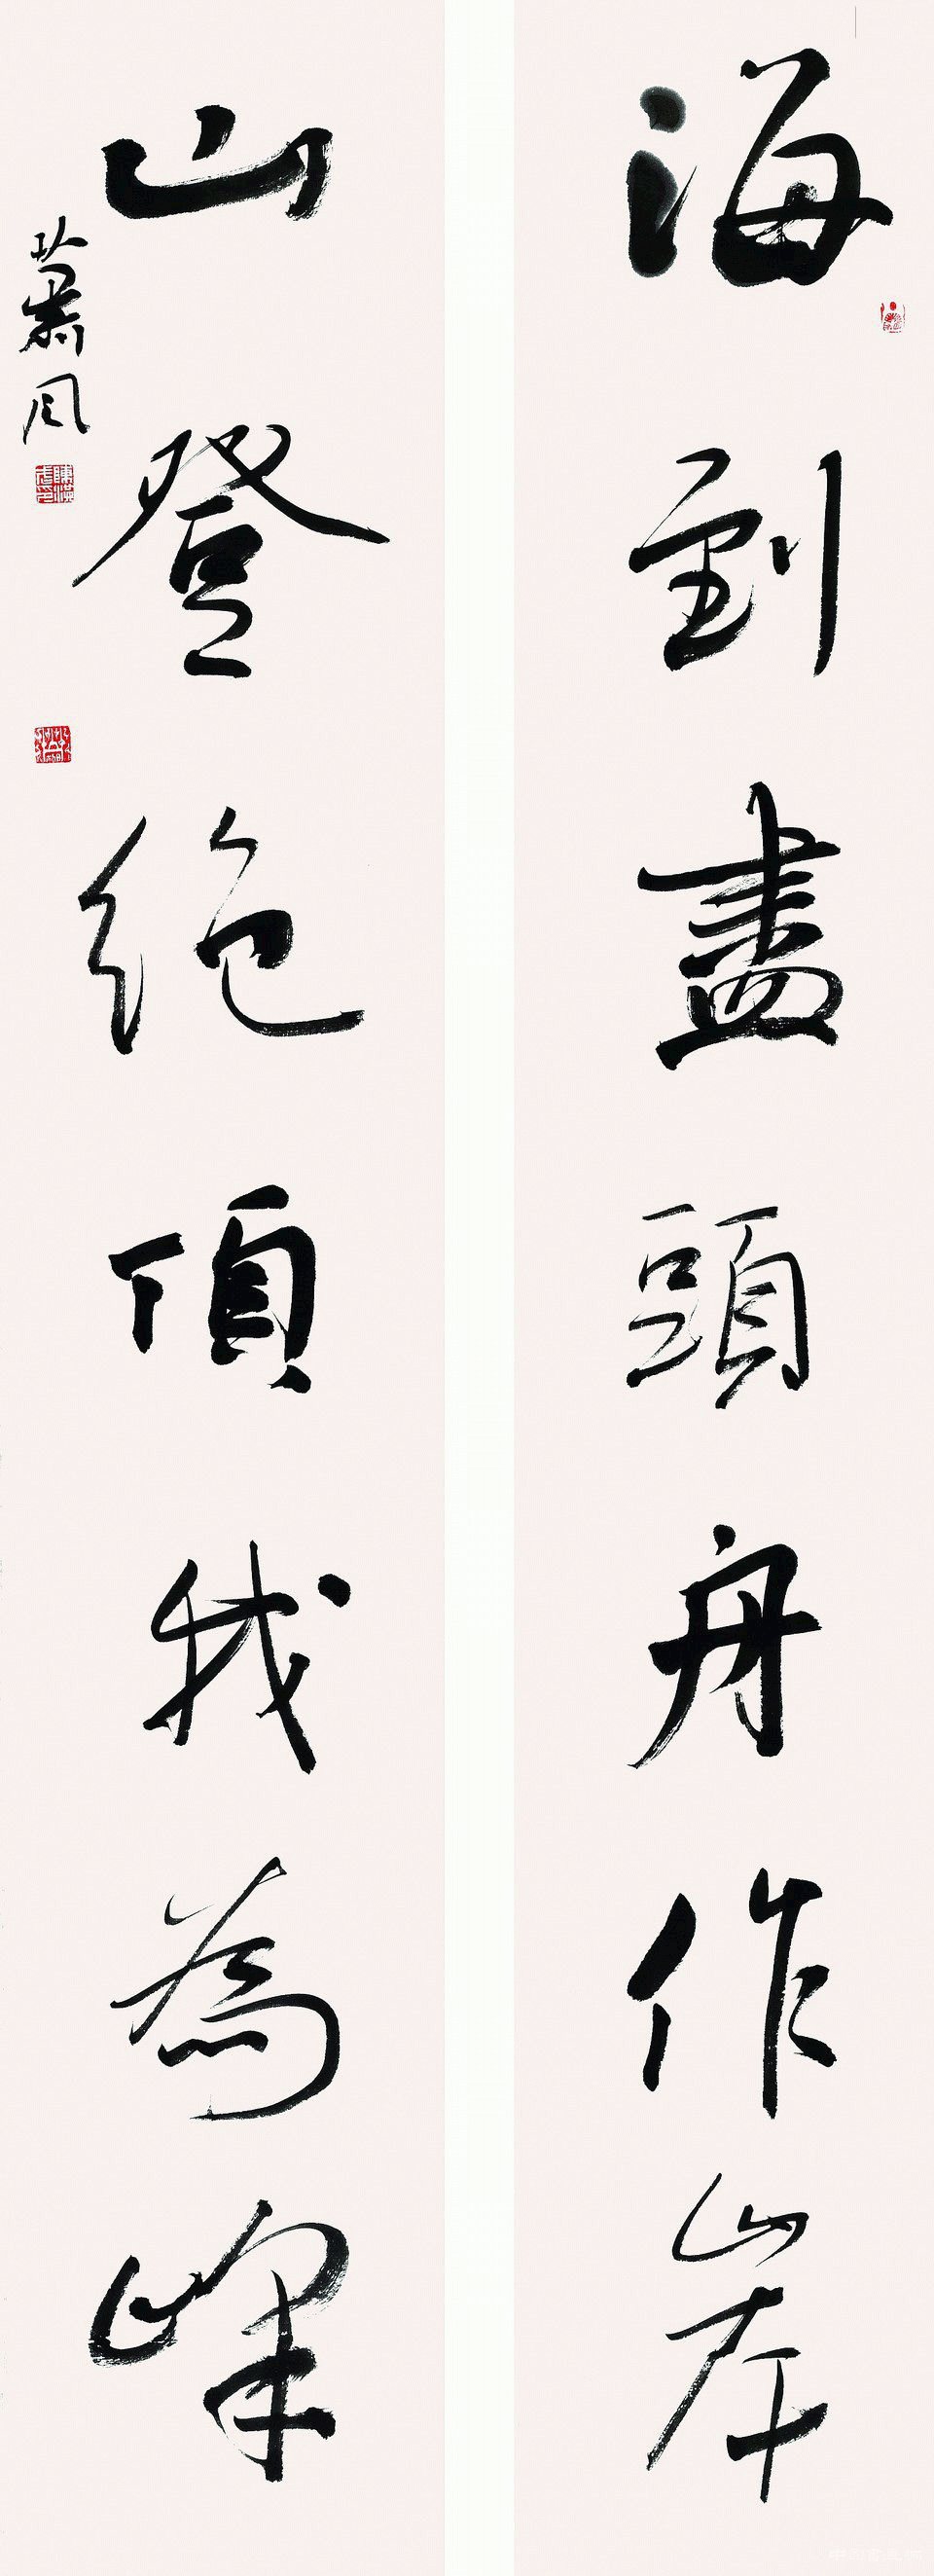 海到盡頭舟作岸
山登絶頂我為峰
蕭風